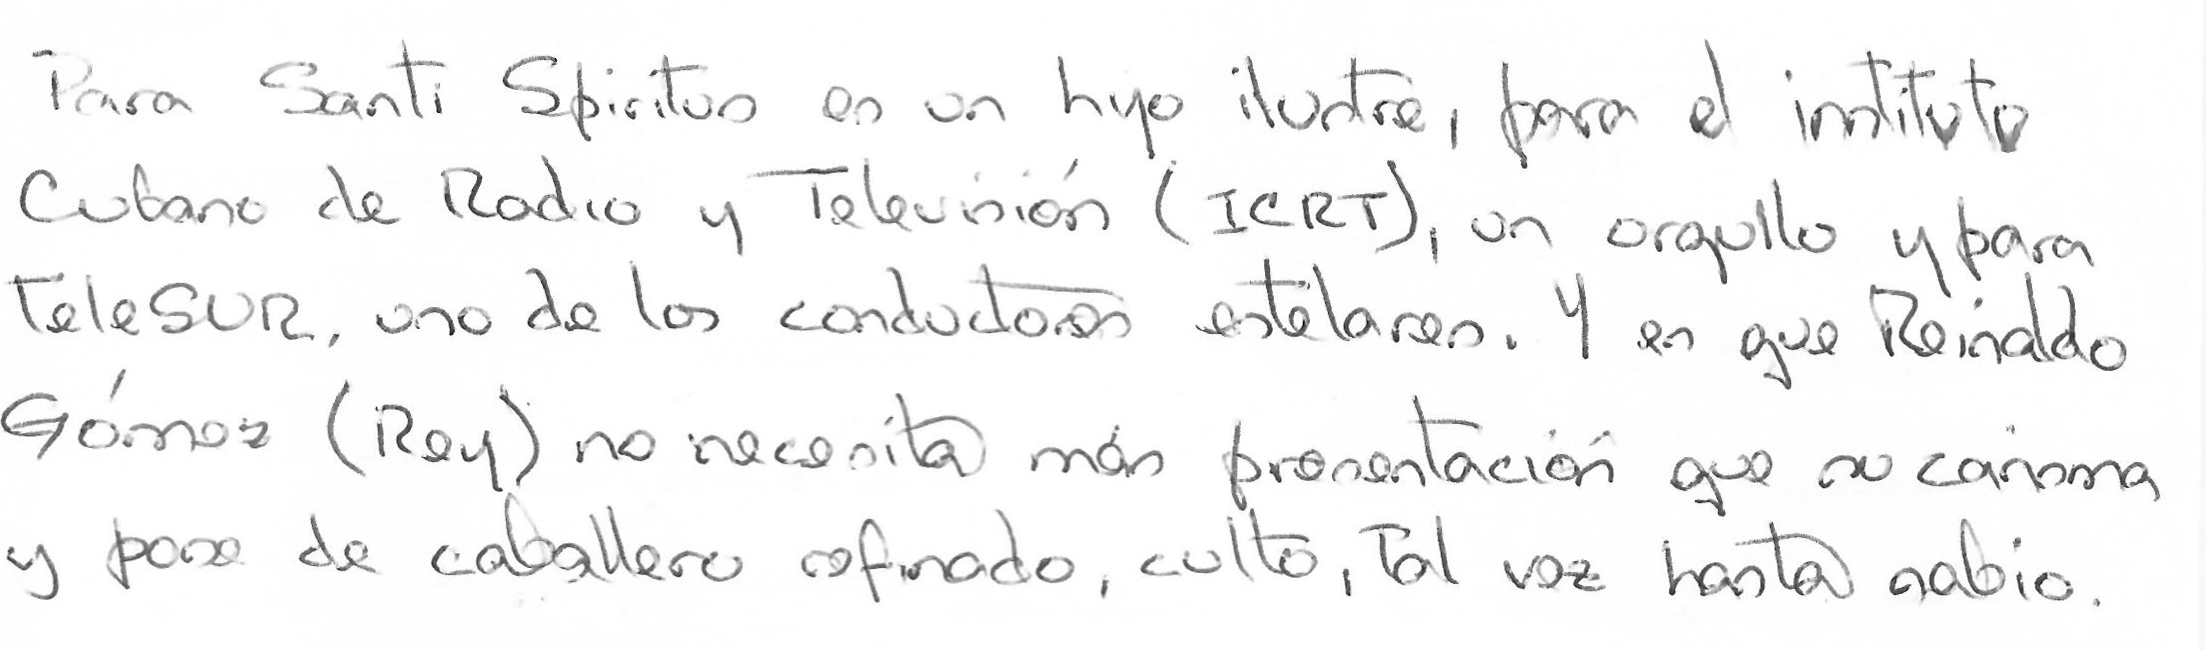 Para Santi Spiritus es un hijo ilustre, para el instituto
Cubano de Radio y Televisión (ICRT), un orgullo y para
TeleSUR, uno de los conductores estelares. Y es que Reinaldo
Gómez (Rey) no necesita más presentación que su carisma
y pose de caballero refinado, culto, tal vez hasta sabio.